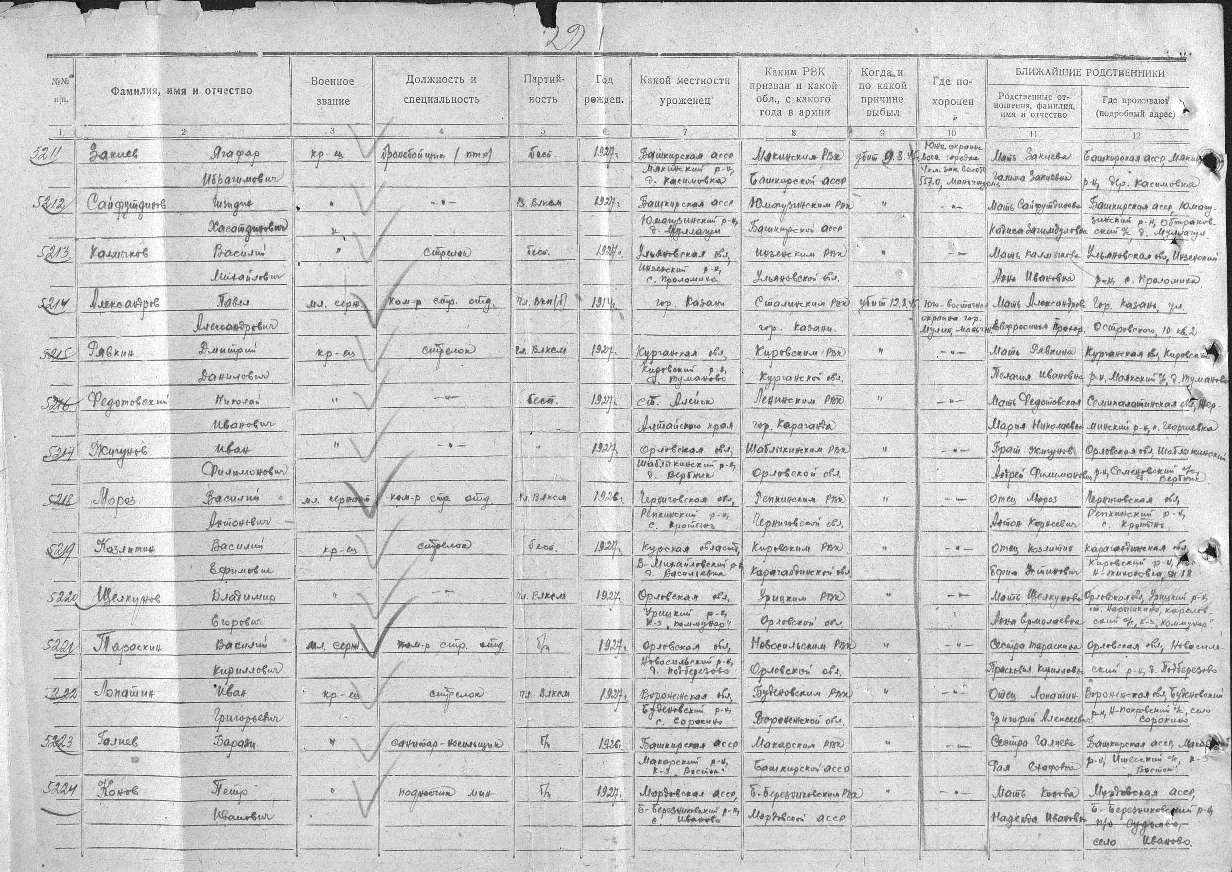 29
№№ п/п.
Фамилия, имя и отчество
Военное звание
Должность и специальность
Партий-ность
Год рожден.
Какой местности уроженец
Каким РВК призван и какой обл., с какого года в армии
Когда, и по какой причине выбыл
Где по-хоронен
БЛИЖАЙШИЕ РОДСТВЕННИКИ
Родственные от-ношения, фамилия, имя и отчество
Где проживают (подробный адрес)
1 2 3 4 5 6 7 8 9 10 11 12
5211 Закиев Ягафар кр-ец бесп. 1927г. Башкирская асср Мякинским РВК убит 9.8.45 Мать Закиева Башкирская асср
Ибрагимович Мякинский р-н, д. Касимовка Башкирской асср Закиевна р-н, дер. Касимовка
5212 Сайфутдинов " -"- Вл. Влксм 1927г. Башкирская асср Юмагузинским РВК " -"- Мать Сайфутдинова Башкирская асср, Юмагу-
Хасатдинович Юмагузинский р-н, Башкирской асср
5213 Калмыков Василий " стрелок бесп. 1927г. Ульяновская обл, Инзенским РВК " -"- Мать Калмыкова Ульяновская обл, Инзенский
Михайлович Инзенский р-н, с. Проломиха Ульяновской обл. Анна Ивановна р-н, с. Проломиха
5214 Александров Павел мл. серж. ком-р стр. отд. Чл. Вкп(б) 1914г. гор. Казань Сталинским РВК убит 12.8.45 Юго-восточная Мать Александров гор. Казань, ул.
Александрович гор. Казани окраина гор. Островского, 10 кв. 2
5215 Рявкин Дмитрий кр-ец стрелок Чл. Влксм 1927г. Курганская обл, Кировским РВК " -"- Мать Рявкина Курганская обл, Кировский
Данилович Кировский р-н, д. Туманово Курганской обл. Пелагия Ивановна р-н, д. Туманово
5216 Федотовский Николай " -"- бесп. 1927г. ст. Алейск Ленинским РВК " -"- Мать Федотовская Семипалатинская обл,
Иванович Алтайского края гор. Караганда Мария Николаевна р-н, с. Георгиевка
5217 Жигунов Иван " -"- 1927г. Орловская обл, Шаблыкинским РВК " -"- Брат Жигунов Орловская обл, Шаблыкинский
Филимонович Шаблыкинский р-н, Орловской обл. Андрей Филимонович
5218 Мороз Василий мл. сержант ком-р стр. отд. Чл. Влксм 1926г. Черниговская обл, Репкинским РВК " -"- Отец Мороз Черниговская обл,
Антонович Репкинский р-н, Черниговской обл. Антон Репкинский р-н,
5219 Казлитин Василий кр-ец стрелок бесп. 1927г. Курская область, Кировским РВК " -"- Отец Козлитин Карагандинская обл
Ефимович В-Михайловский р-н, д. Васильевка Карагандинской обл. Ефим Кировский р-н,
5220 Щелкунов Владимир " -"- Чл. Влксм 1927г. Орловская обл, Урицким РВК " -"- Мать Щелкунова Орловская обл, Урицкий р-н,
Егорович Урицкий р-н, к-з "Коммунар" Орловской обл. Анна Ермолаевна к-з "Коммунар"
5221 Тараскин Василий мл. серж. ком-р стр. отд б/п 1927г. Орловская обл, Новосильским РВК " -"- Сестра Тараскина Орловская обл, Новосиль-
Кириллович Новосильский р-н, д. Подберезово Орловской обл. Прасковья Кирилловна ский р-н, д. Подберезово
5222 Лопатин Иван кр-ец стрелок Чл. Влксм 1927г. Воронежская обл, Буденовским РВК " -"- Отец Лопатин Воронежская обл, Буденовский
Григорьевич Буденовский р-н, с. Сорокино Воронежской обл. Григорий Алексеевич р-н, село Сорокино
5223 Галиев " санитар-носильщик б/п 1926г. Башкирская асср Макарским РВК " -"- Сестра Галиева Башкирская асср,
Макарский р-н, к-з "Восток" Башкирской асср к-з "Восток"
5224 Конов Петр " подносчик мин б/п 1927г. Мордовская асср, Б-Березниковским РВК " -"- Мать Конова Мордовская асср,
Иванович Б-Березниковский р-н, с. Иваново Мордовской асср Надежда Ивановна Б-Березниковский р-н,
село Иваново.